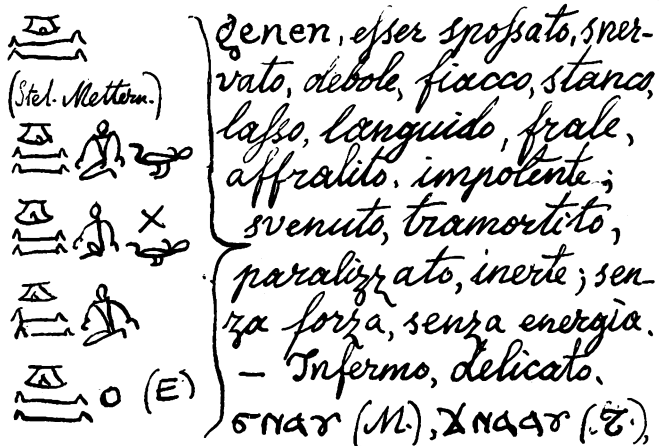 (Stel. Mettern.)
(E)
g̣enen, eſser spoſsato, sner-
vato, debole, fiacco, stanco,
laſso, languido, frale,
affralito, impotente;
svenuto, tramortito,
paralizzato, inerte; sen-
za forza, senza energia.
— Infermo, delicato.
ϭⲛⲁⲩ (M.), ϫⲛⲁⲁⲩ (T.),